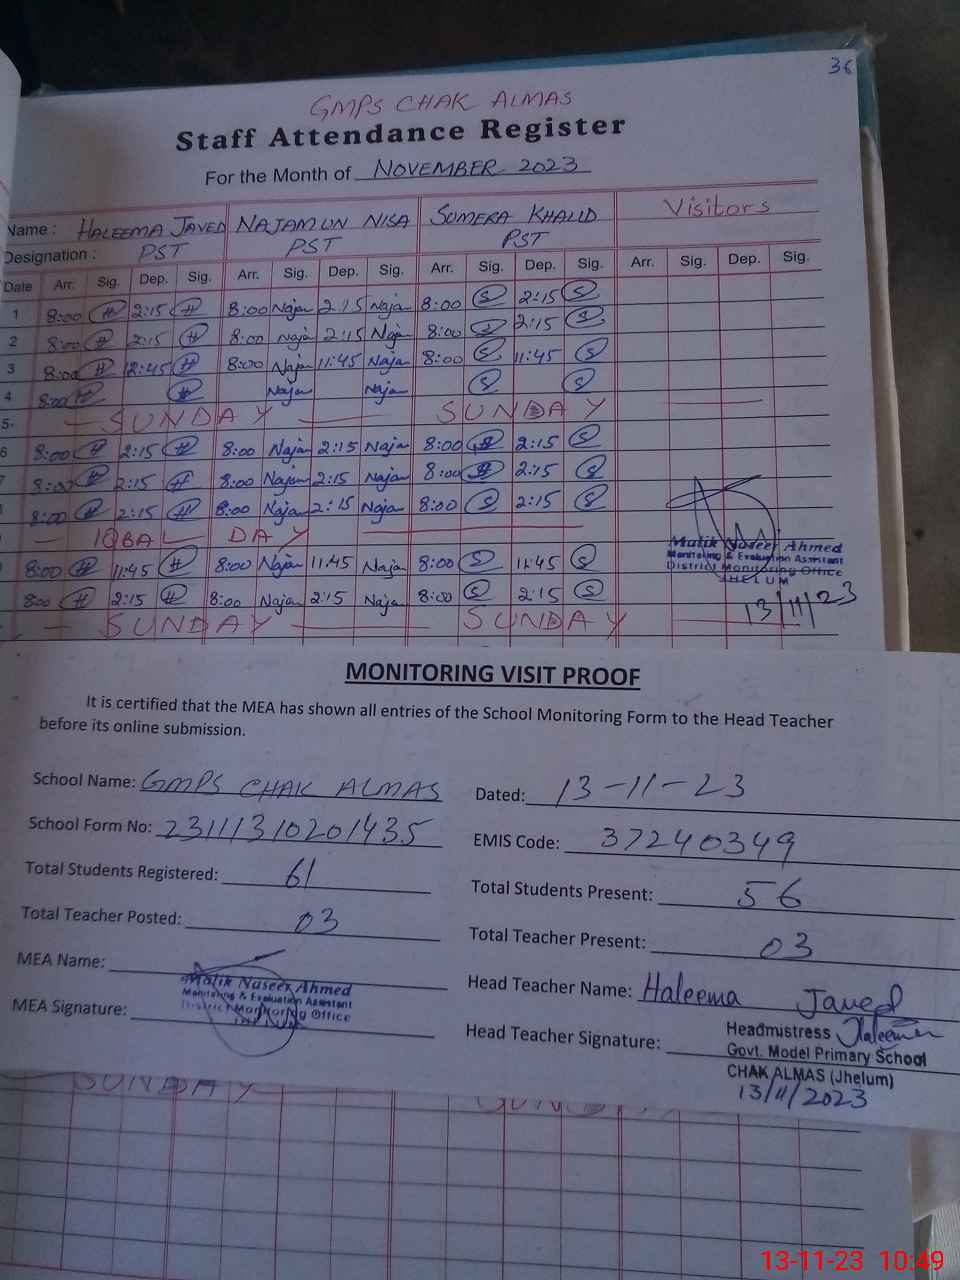 36
GMPS CHAK ALMAS
Staff Attendance Register
For the Month of NOVEMBER 2023
Name : HALEEMA JAVED NAJAM UN NISA SUMERA KHALID Visitors
Designation : PST PST PST
Date Arr. Sig. Dep. Sig. Arr. Sig. Dep. Sig. Arr. Sig. Dep. Sig. Arr. Sig. Dep. Sig.
1 8:00 H 2:15 H 8:00 Najam 2:15 Najam 8:00 S 2:15 S
2 8:00 H 2:15 H 8:00 Najam 2:15 Najam 8:00 S 2:15 S
3 8:00 H 12:45 H 8:00 Najam 11:45 Najam 8:00 S 11:45 S
4 8:00 H H Najam Najam S S
5 SUNDAY SUNDAY
6 8:00 H 2:15 H 8:00 Najam 2:15 Najam 8:00 S 2:15 S
8:00 H 2:15 H 8:00 Najam 2:15 Najam 8:00 2:15 S
8:00 H 2:15 H 8:00 Najam 2:15 Najam 8:00 S 2:15 S
IQBAL DAY
8:00 H 11:45 H 8:00 Najam 11:45 Najam 8:00 S 11:45 S
8:00 H 2:15 H 8:00 Najam 2:15 Najam 8:00 S 2:15 S
SUNDAY SUNDAY
Malik Naseer Ahmed
Monitoring & Evaluation Assistant
District Monitoring Office
JHELUM
13/11/23
MONITORING VISIT PROOF
It is certified that the MEA has shown all entries of the School Monitoring Form to the Head Teacher
before its online submission.
School Name: GMPS CHAK ALMAS
Dated: 13-11-23
School Form No: 23111310201435
EMIS Code: 37240349
Total Students Registered: 61
Total Students Present: 56
Total Teacher Posted: 03
Total Teacher Present: 03
MEA Name:
Malik Naseer Ahmed
Monitoring & Evaluation Assistant
District Monitoring Office
MEA Signature:
Head Teacher Name: Haleema Javed
Head Teacher Signature: Haleema
Headmistress
Govt. Model Primary School
CHAK ALMAS (Jhelum)
13/11/2023
SUNDAY
13-11-23 10:49